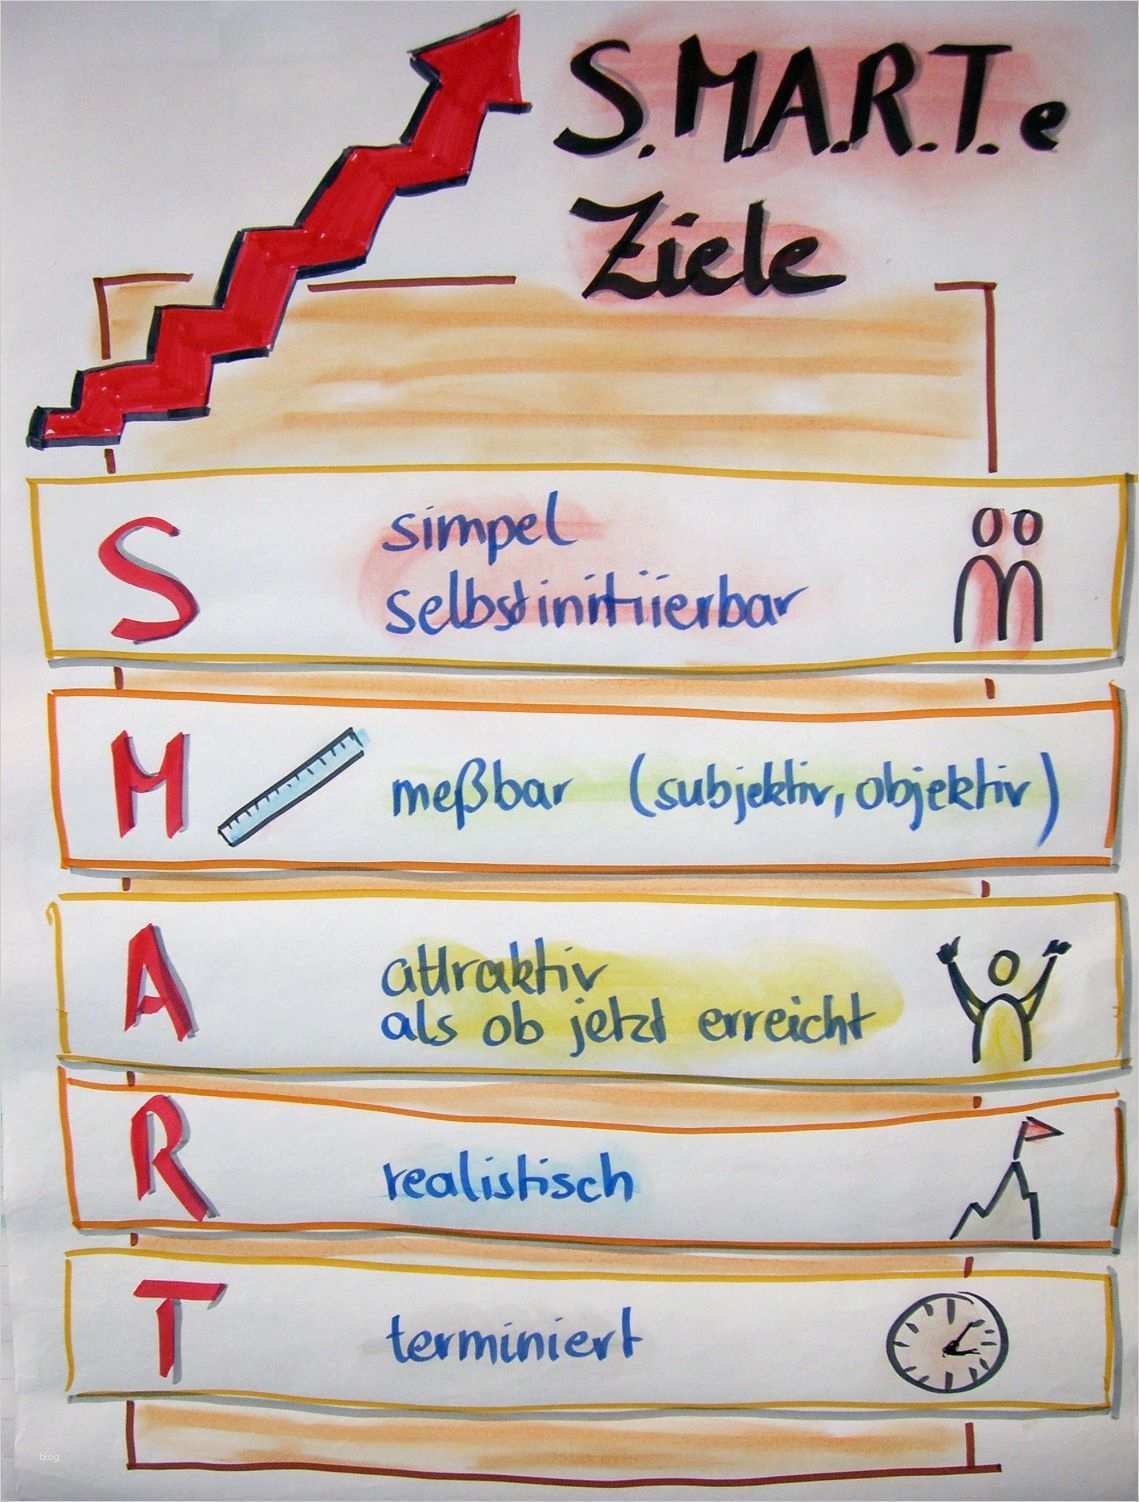 S.M.A.R.T.e
Ziele
S
simpel
selbstinitiierbar
M
meßbar (subjektiv, objektiv)
A
attraktiv
als ob jetzt erreicht
R
realistisch
T
terminiert
blog